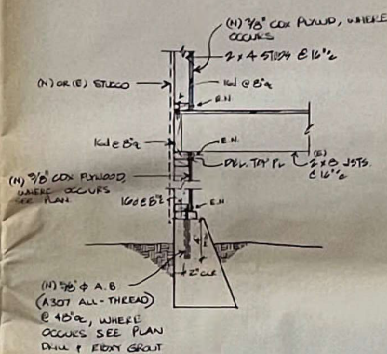 (N) 3/8" CDX PLYWD, WHERE
OCCURS
2 x 4 STUDS @ 16"c
(N) OR (E) STUCCO
16d @ 8"c
E.N.
16d @ 8"c
E.N.
DBL. TOP PL
(E)
2 x 8 JSTS.
@ 16"c
(N) 3/8" CDX PLYWOOD,
WHERE OCCURS
SEE PLAN
16d @ 8"c
E.N
2" CLR
(N) 5/8" φ A.B
(A307 ALL-THREAD)
@ 48"oc, WHERE
OCCURS SEE PLAN
DRILL & EPOXY GROUT